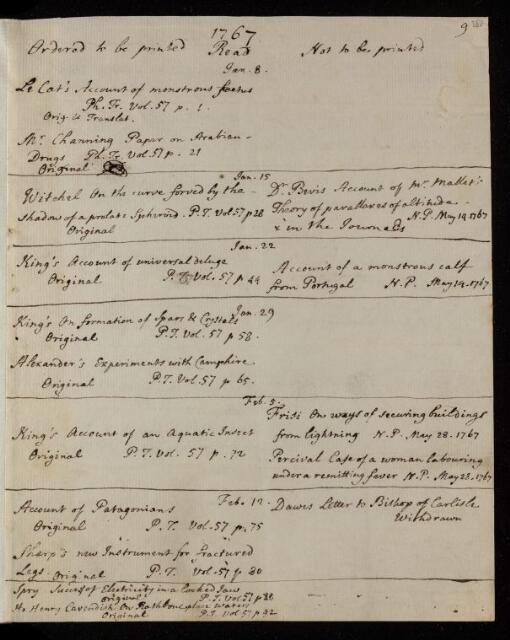 1767
9
Ordered to be printed
Read
Not to be printed
Jan. 8.
Le Cat's Account of monstrous foetus
Ph. Tr. Vol. 57 p. 1.
Orig. & Translat.
Mr. Channing Paper on Arabian
Drugs Ph. Tr. Vol. 57 p. 21
Original
Jan. 15
Witchel On the curve forved by the
Shadow of a prolate Spheroid. P.T. Vol 57 p 28
Original
Dr. Bevis Account of Mr. Mallet's
Theory of parallaxes of altitude
N.P. May 14 1767
& in the Journals
Jan. 22
King's Account of universal deluge
Original P.T. Vol. 57 p 44
Account of a monstrous calf
from Portugal N.P. May 14. 1767
Jan. 29
King's On formation of Spars & Crystals
Original P.T. Vol. 57 p 58.
Alexander's Experiments with Camphire
Original P.T. Vol. 57 p 65.
Feb. 5.
King's Account of an Aquatic Insect
Original P.T. Vol. 57 p. 72
Frisi On ways of securing buildings
from lightning N.P. May 28. 1767
Percival Case of a woman labouring
under a remitting fever N.P. May 28. 1767
Feb. 12.
Account of Patagonians
Original P.T. Vol. 57 p. 75
Dawes Letter to Bishop of Carlisle
Withdrawn
Sharp's new Instrument for fractured
Legs. Original P.T. Vol. 57 p 80
Spry Success of Electricity in a Locked Jaw
original P.T. Vol 57 p 88
Mr Henry Cavendish On Rathbone place Water
Original P.T. Vol 57 p 92